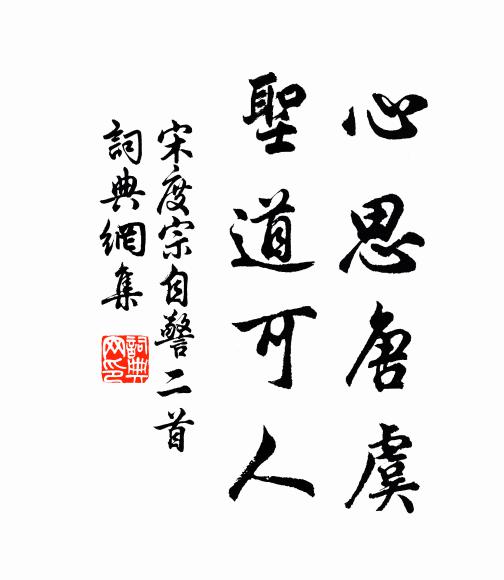 心思唐虞
聖道可人
宋度宗自警二首
詞典網集
詞典
网印